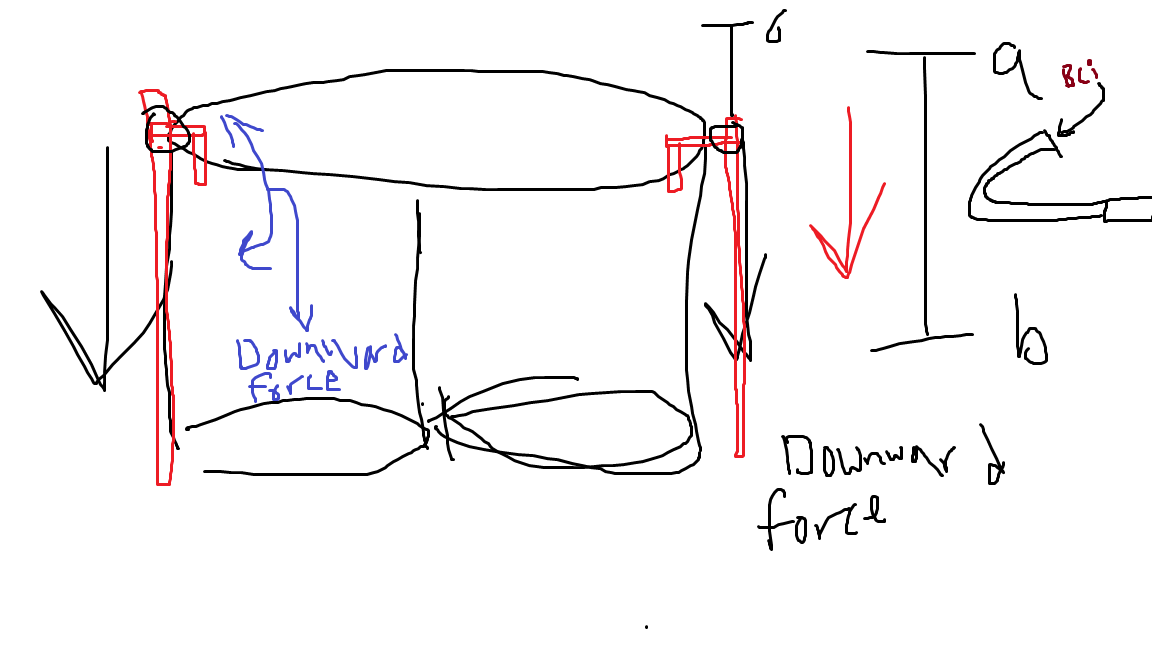 a
BCi
b
Downward
force
Downward
force